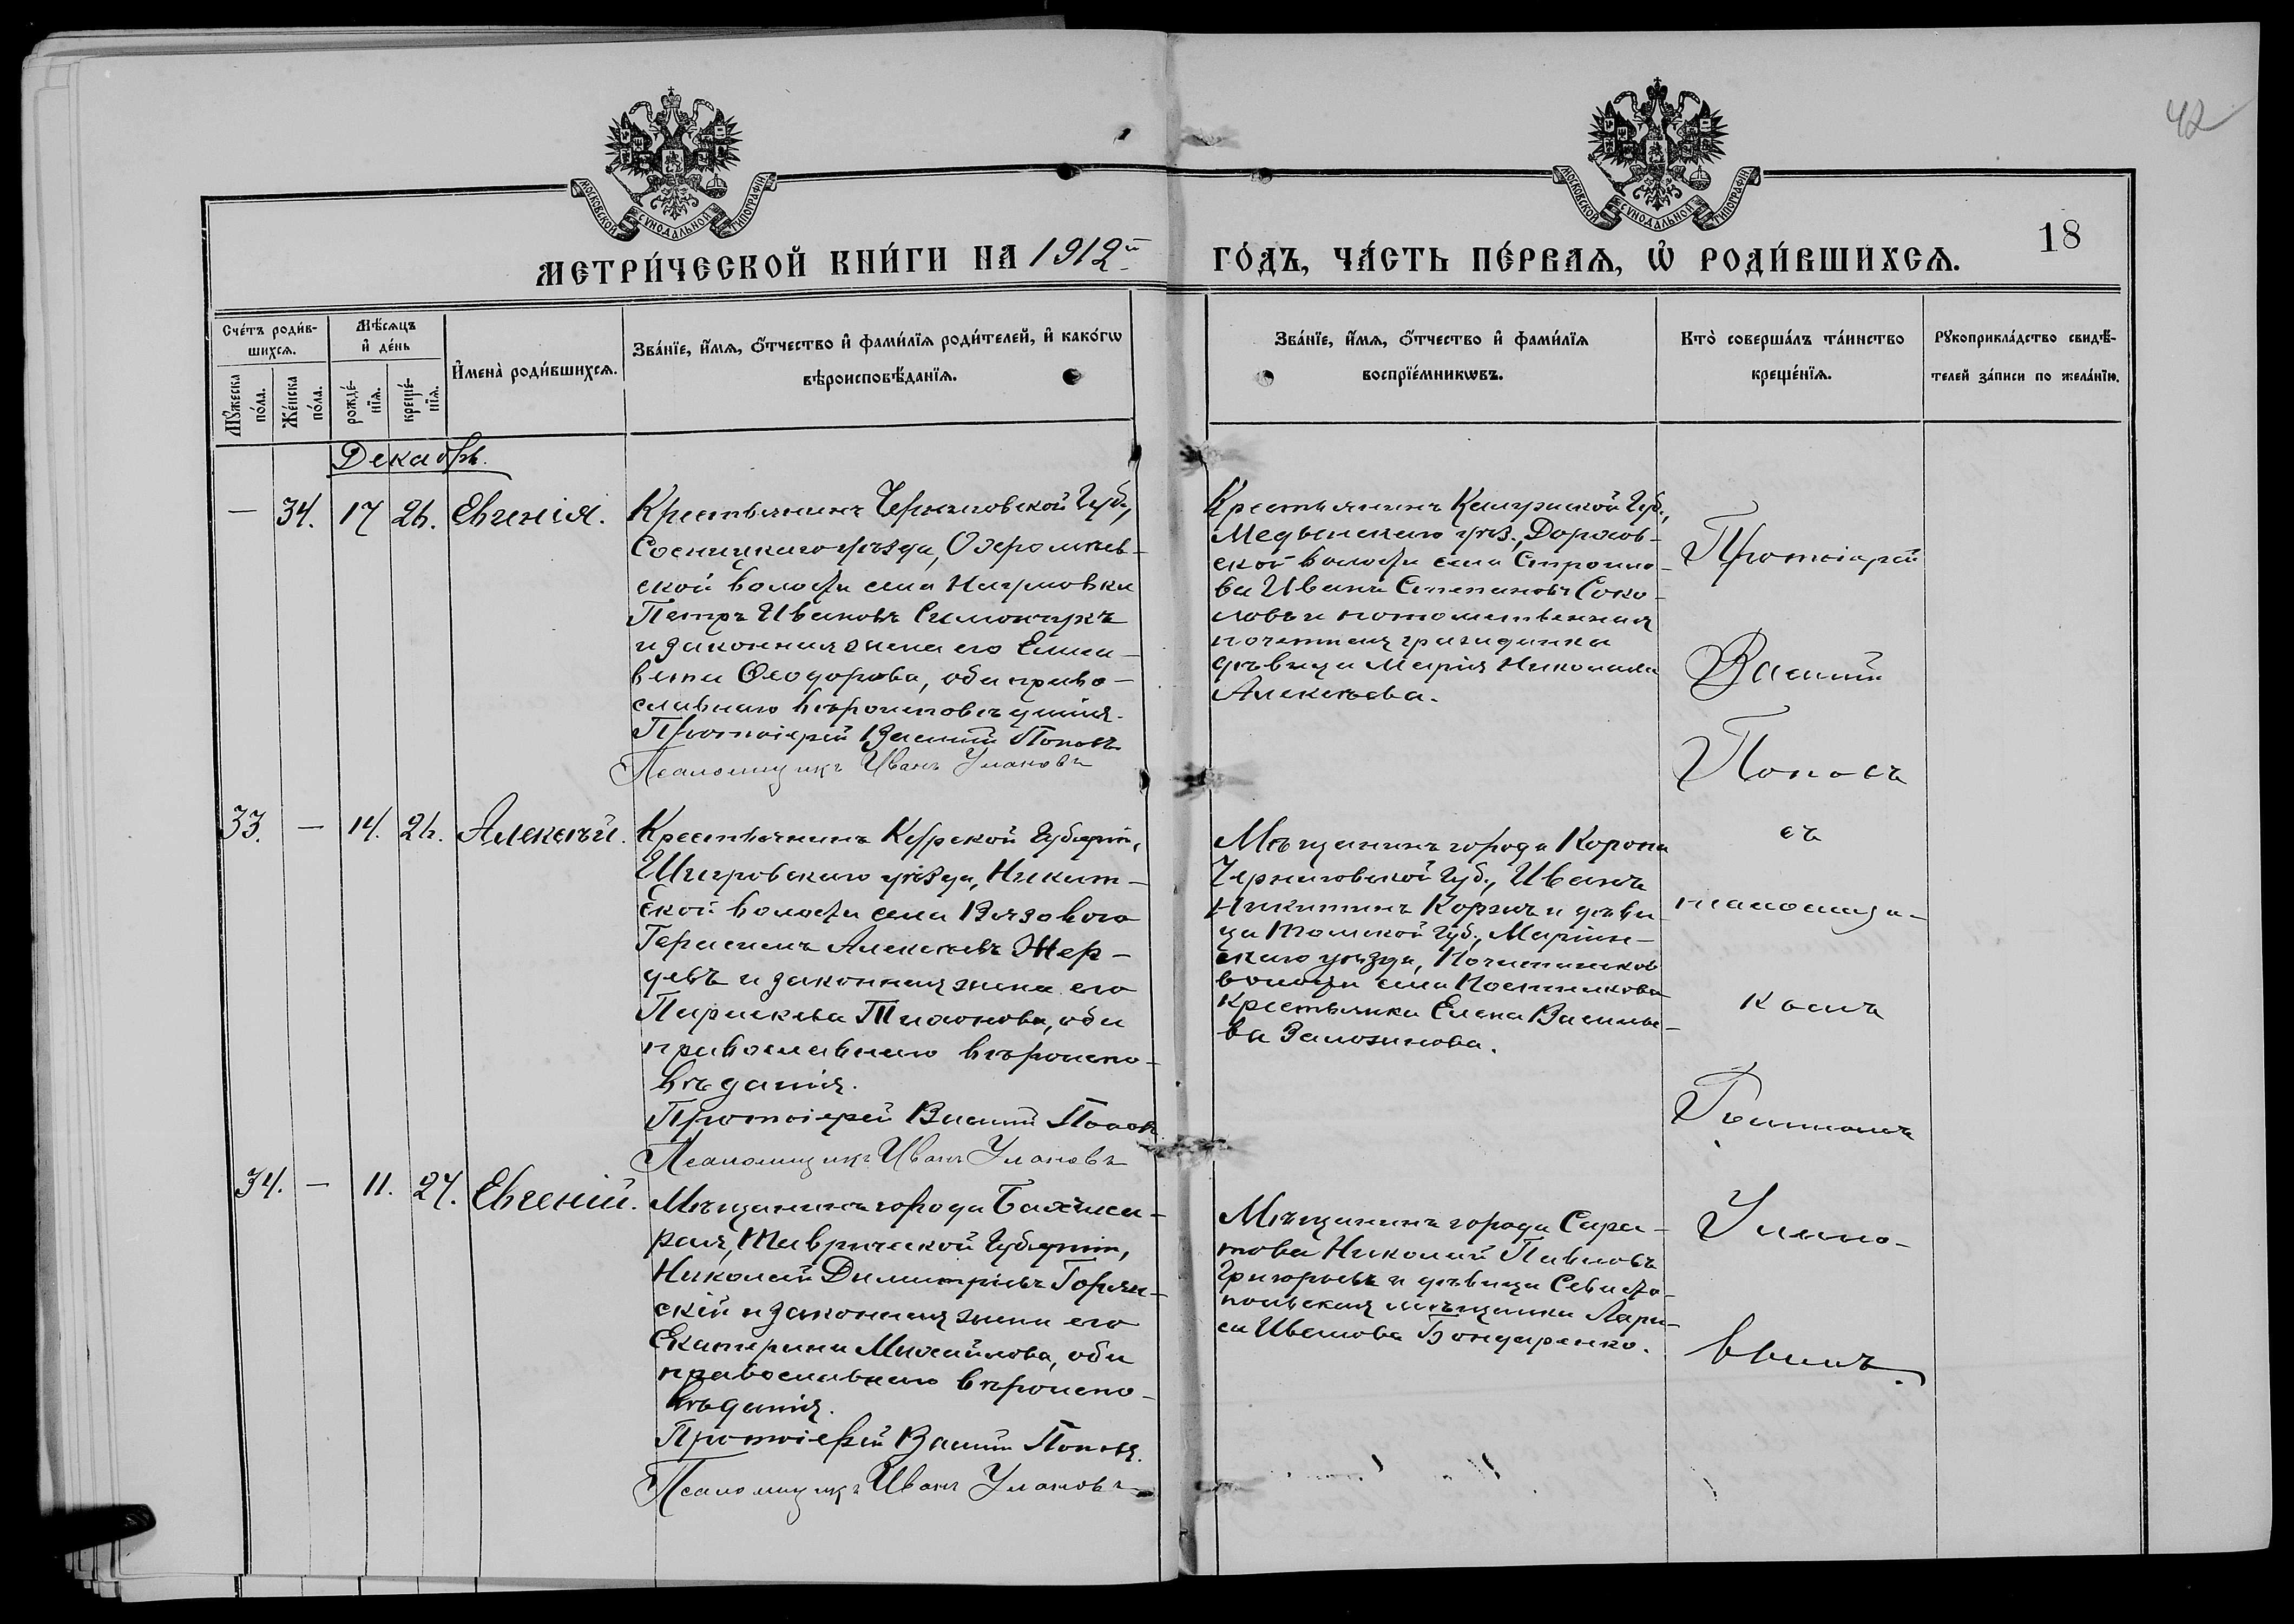 42
МОСКОВСКОЙ СУНОДАЛЬНОЙ ТИПОГРАФІИ
МОСКОВСКОЙ СУНОДАЛЬНОЙ ТИПОГРАФІИ
МЕТРИ́ЧЕСКОЙ КНИ́ГИ НА 1912й
ГО́ДЪ, ЧА́СТЬ ПЕ́РВАѦ, Ѡ҆ РОДИ́ВШИХСѦ.
18
Сче́тъ роди́в-
шихсѧ.
Мꙋ́жеска
по́ла.
Же́нска
по́ла.
Мѣ́сѧцъ
и҆ де́нь
рожде́-
нїѧ.
креще́-
нїѧ.
И҆мена̀ роди́вшихсѧ.
Зва́нїе, и҆́мѧ, ѻ҆́тчество и҆ фами́лїѧ роди́телей, и҆ како́гѡ
вѣроисповѣ́данїѧ.
Зва́нїе, и҆́мѧ, ѻ҆́тчество и҆ фами́лїѧ
воспрїе́мникѡвъ.
Кто̀ соверша́лъ та́инство
креще́нїѧ.
Рꙋкоприкла́дство свидѣ́-
телей за́писи по жела́нїю.
Декабрь.
— 34. 17 26. Евгенія.
Крестьянинъ Черниговской Губ.,
Сосницкаго уѣзда,
ской волости села Наумовки
Петръ Ивановъ
и законная жена его Елиса-
вета Ѳеодорова, оба право-
славнаго вѣроисповѣданія.
Протоіерей Василій Поповъ
Псаломщикъ Иванъ Улановъ
Крестьянинъ Калужской Губ.,
Медынскаго уѣз.,
ской волости села
ва Иванъ Степановъ Соко-
ловъ и потомственная
почетная гражданка
дѣвица Марія Николаева
Алексѣева.
Протоіерей
Василій
Поповъ
съ
псаломщи-
комъ
Іоанномъ
Улано-
вымъ.
33. — 14. 26. Алексѣй.
Крестьянинъ Курской Губерніи,
Щигровскаго уѣзда, Никит-
ской волости села Вязового
Герасимъ Алексѣевъ Жер-
девъ и законная жена его
Параскева Тихонова, оба
православнаго вѣроиспо-
вѣданія.
Протоіерей Василій Поповъ
Псаломщикъ Иванъ Улановъ
Мѣщанинъ города Коропа
Черниговской Губ., Иванъ
Никитинъ Коржъ и дѣви-
ца Томской Губ., Маріин-
скаго уѣзда,
волости села
крестьянка Елена Василье-
ва
34. — 11. 27. Евгеній.
Мѣщанинъ города Бахчиса-
рая, Таврической Губерніи,
Николай Димитріевъ Горян-
скій и законная жена его
Екатерина Михайлова, оба
православнаго вѣроиспо-
вѣданія.
Протоіерей Василій Поповъ.
Псаломщикъ Иванъ Улановъ
Мѣщанинъ города Сара-
това Николай Павловъ
Григорьевъ и дѣвица Севасто-
польская мѣщанка Лари-
са Иванова Бондаренко.